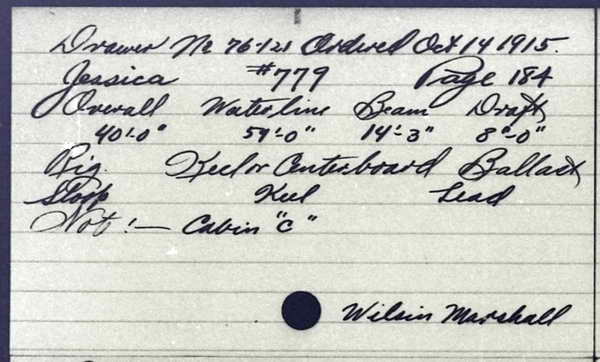 Drawer No 76-121 Ordered Oct 14 1915.
Jessica #779 Page 184
Overall Waterline Beam Draft
40'-0" 59'-0" 14'-3" 8"-0"
Rig. Keel or Centerboard Ballast
Sloop Keel Lead
Not!— Cabin "C"
Wilsin Marshall